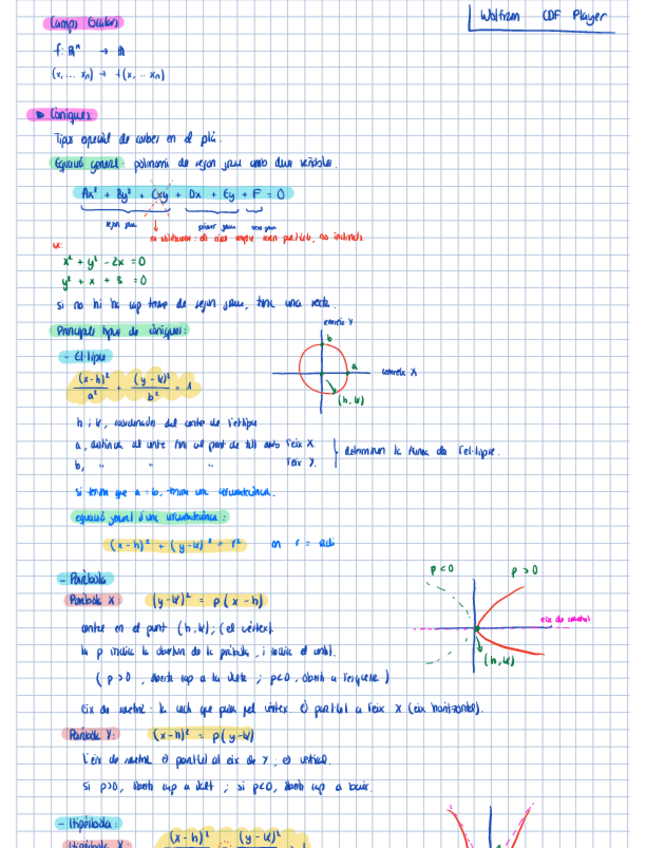 Wolfram CDF Player
Camps Escalars
f: ℝⁿ → ℝ
(x, ... xn) → f(x, .. xn)
▶ Còniques:
Tipus especial de corbes en el pla.
Equació general: polinomi de segon grau amb dues variables.
Ax² + By² + Cxy + Dx + Ey + F = 0
segon grau primer grau
no utilitzarem: els eixos sempre seran paral·lels, no inclinats.
ex:
x² + y² - 2x = 0
y² + x + 3 = 0
si no hi ha cap terme de segon grau, tinc una recta.
Principals tipus de còniques:
- El·lipse
(x-h)²/a² + (y-k)²/b² = 1
semieix Y
b
a
semieix X
(h, k)
h i k, coordenades del centre de l'el·lipse
a, distància del centre fins al punt de tall amb l'eix X.
b, " " " l'eix Y.
determinen la forma de l'el·lipse.
si tenim que a = b, tenim una circumferència.
equació general d'una circumferència:
(x-h)² + (y-k)² = r² on r = radi
- Paràbola
Paràbola X: (y-k)² = p(x-h)
p<0 p>0
eix de simetria
(h, k)
centre en el punt (h, k); (el vèrtex).
la p indica la obertura de la paràbola, i indica el sentit.
( p>0, oberta cap a la dreta ; p<0, oberta a l'esquerra )
eix de simetria: la recta que passa pel vèrtex és paral·lel a l'eix X (eix horitzontal).
Paràbola Y: (x-h)² = p(y-k)
L'eix de simetria és paral·lel al eix de Y; és vertical.
Si p>0, oberta cap a dalt ; si p<0, oberta cap a baix.
- Hipèrbola:
Hipèrbola X:
(x-h)² (y-k)²